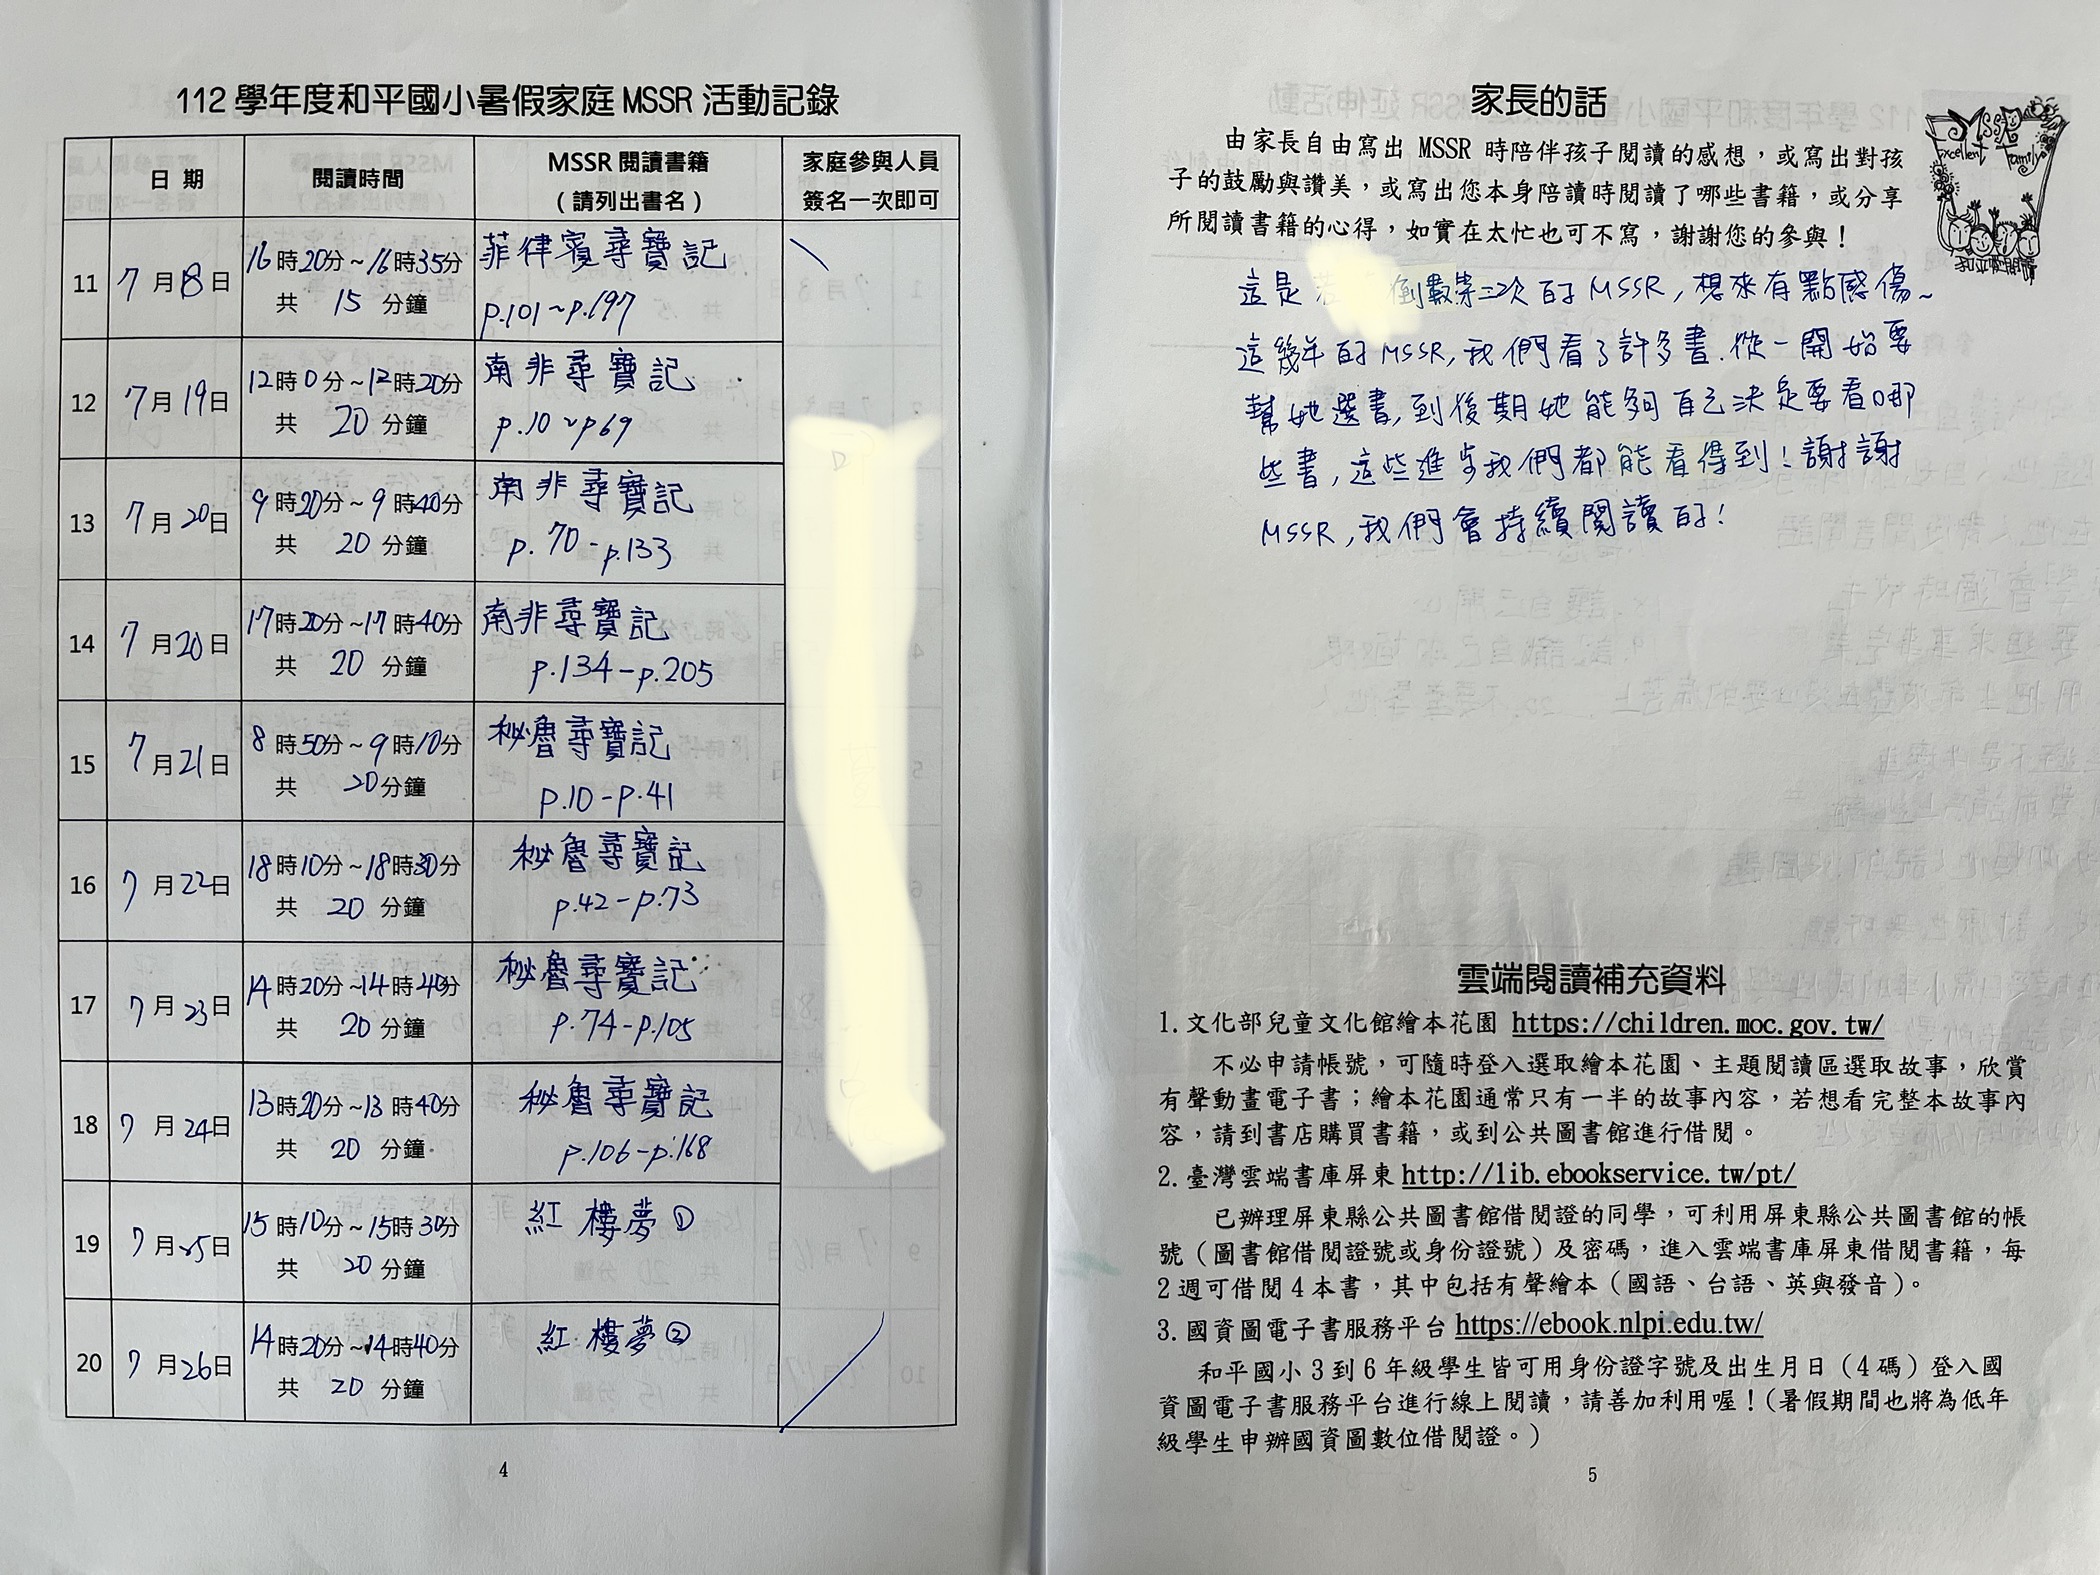 112 學年度和平國小暑假家庭 MSSR 活動記錄
日 期
閱讀時間
MSSR 閱讀書籍
(請列出書名)
家庭參與人員
簽名一次即可
11
7 月 18 日
16 時 20 分 ~ 16 時 35 分
共 15 分鐘
菲律賓尋寶記
p.101~p.197
12
7 月 19 日
12 時 0 分 ~ 12 時 20 分
共 20 分鐘
南非尋寶記
p.10~p69
13
7 月 20 日
9 時 20 分 ~ 9 時 40 分
共 20 分鐘
南非尋寶記
p.70-p.133
14
7 月 20 日
17 時 20 分 ~ 17 時 40 分
共 20 分鐘
南非尋寶記
p.134-p.205
15
7 月 21 日
8 時 50 分 ~ 9 時 10 分
共 20 分鐘
秘魯尋寶記
p.10-p.41
16
7 月 22 日
18 時 10 分 ~ 18 時 30 分
共 20 分鐘
秘魯尋寶記
p.42-p.73
17
7 月 23 日
14 時 20 分 ~ 14 時 40 分
共 20 分鐘
秘魯尋寶記
p.74-p.105
18
7 月 24 日
13 時 20 分 ~ 13 時 40 分
共 20 分鐘
秘魯尋寶記
p.106-p.168
19
7 月 25 日
15 時 10 分 ~ 15 時 30 分
共 20 分鐘
紅樓夢①
20
7 月 26 日
14 時 20 分 ~ 14 時 40 分
共 20 分鐘
紅樓夢②
4
家長的話
Excellent MSSR family
由家長自由寫出 MSSR 時陪伴孩子閱讀的感想，或寫出對孩
子的鼓勵與讚美，或寫出您本身陪讀時閱讀了哪些書籍，或分享
所閱讀書籍的心得，如實在太忙也可不寫，謝謝您的參與！
這是 倒數第二次的 MSSR，想來有點感傷~
這幾年的 MSSR，我們看了許多書．從一開始要
幫她選書，到後期她能夠自己決定要看哪
些書，這些進步我們都能看得到！謝謝
MSSR，我們會持續閱讀的！
雲端閱讀補充資料
1. 文化部兒童文化館繪本花園 https://children.moc.gov.tw/
不必申請帳號，可隨時登入選取繪本花園、主題閱讀區選取故事，欣賞
有聲動畫電子書；繪本花園通常只有一半的故事內容，若想看完整本故事內
容，請到書店購買書籍，或到公共圖書館進行借閱。
2. 臺灣雲端書庫屏東 http://lib.ebookservice.tw/pt/
已辦理屏東縣公共圖書館借閱證的同學，可利用屏東縣公共圖書館的帳
號（圖書館借閱證號或身份證號）及密碼，進入雲端書庫屏東借閱書籍，每
2 週可借閱 4 本書，其中包括有聲繪本（國語、台語、英與發音）。
3. 國資圖電子書服務平台 https://ebook.nlpi.edu.tw/
和平國小 3 到 6 年級學生皆可用身份證字號及出生月日（4 碼）登入國
資圖電子書服務平台進行線上閱讀，請善加利用喔！(暑假期間也將為低年
級學生申辦國資圖數位借閱證。)
5